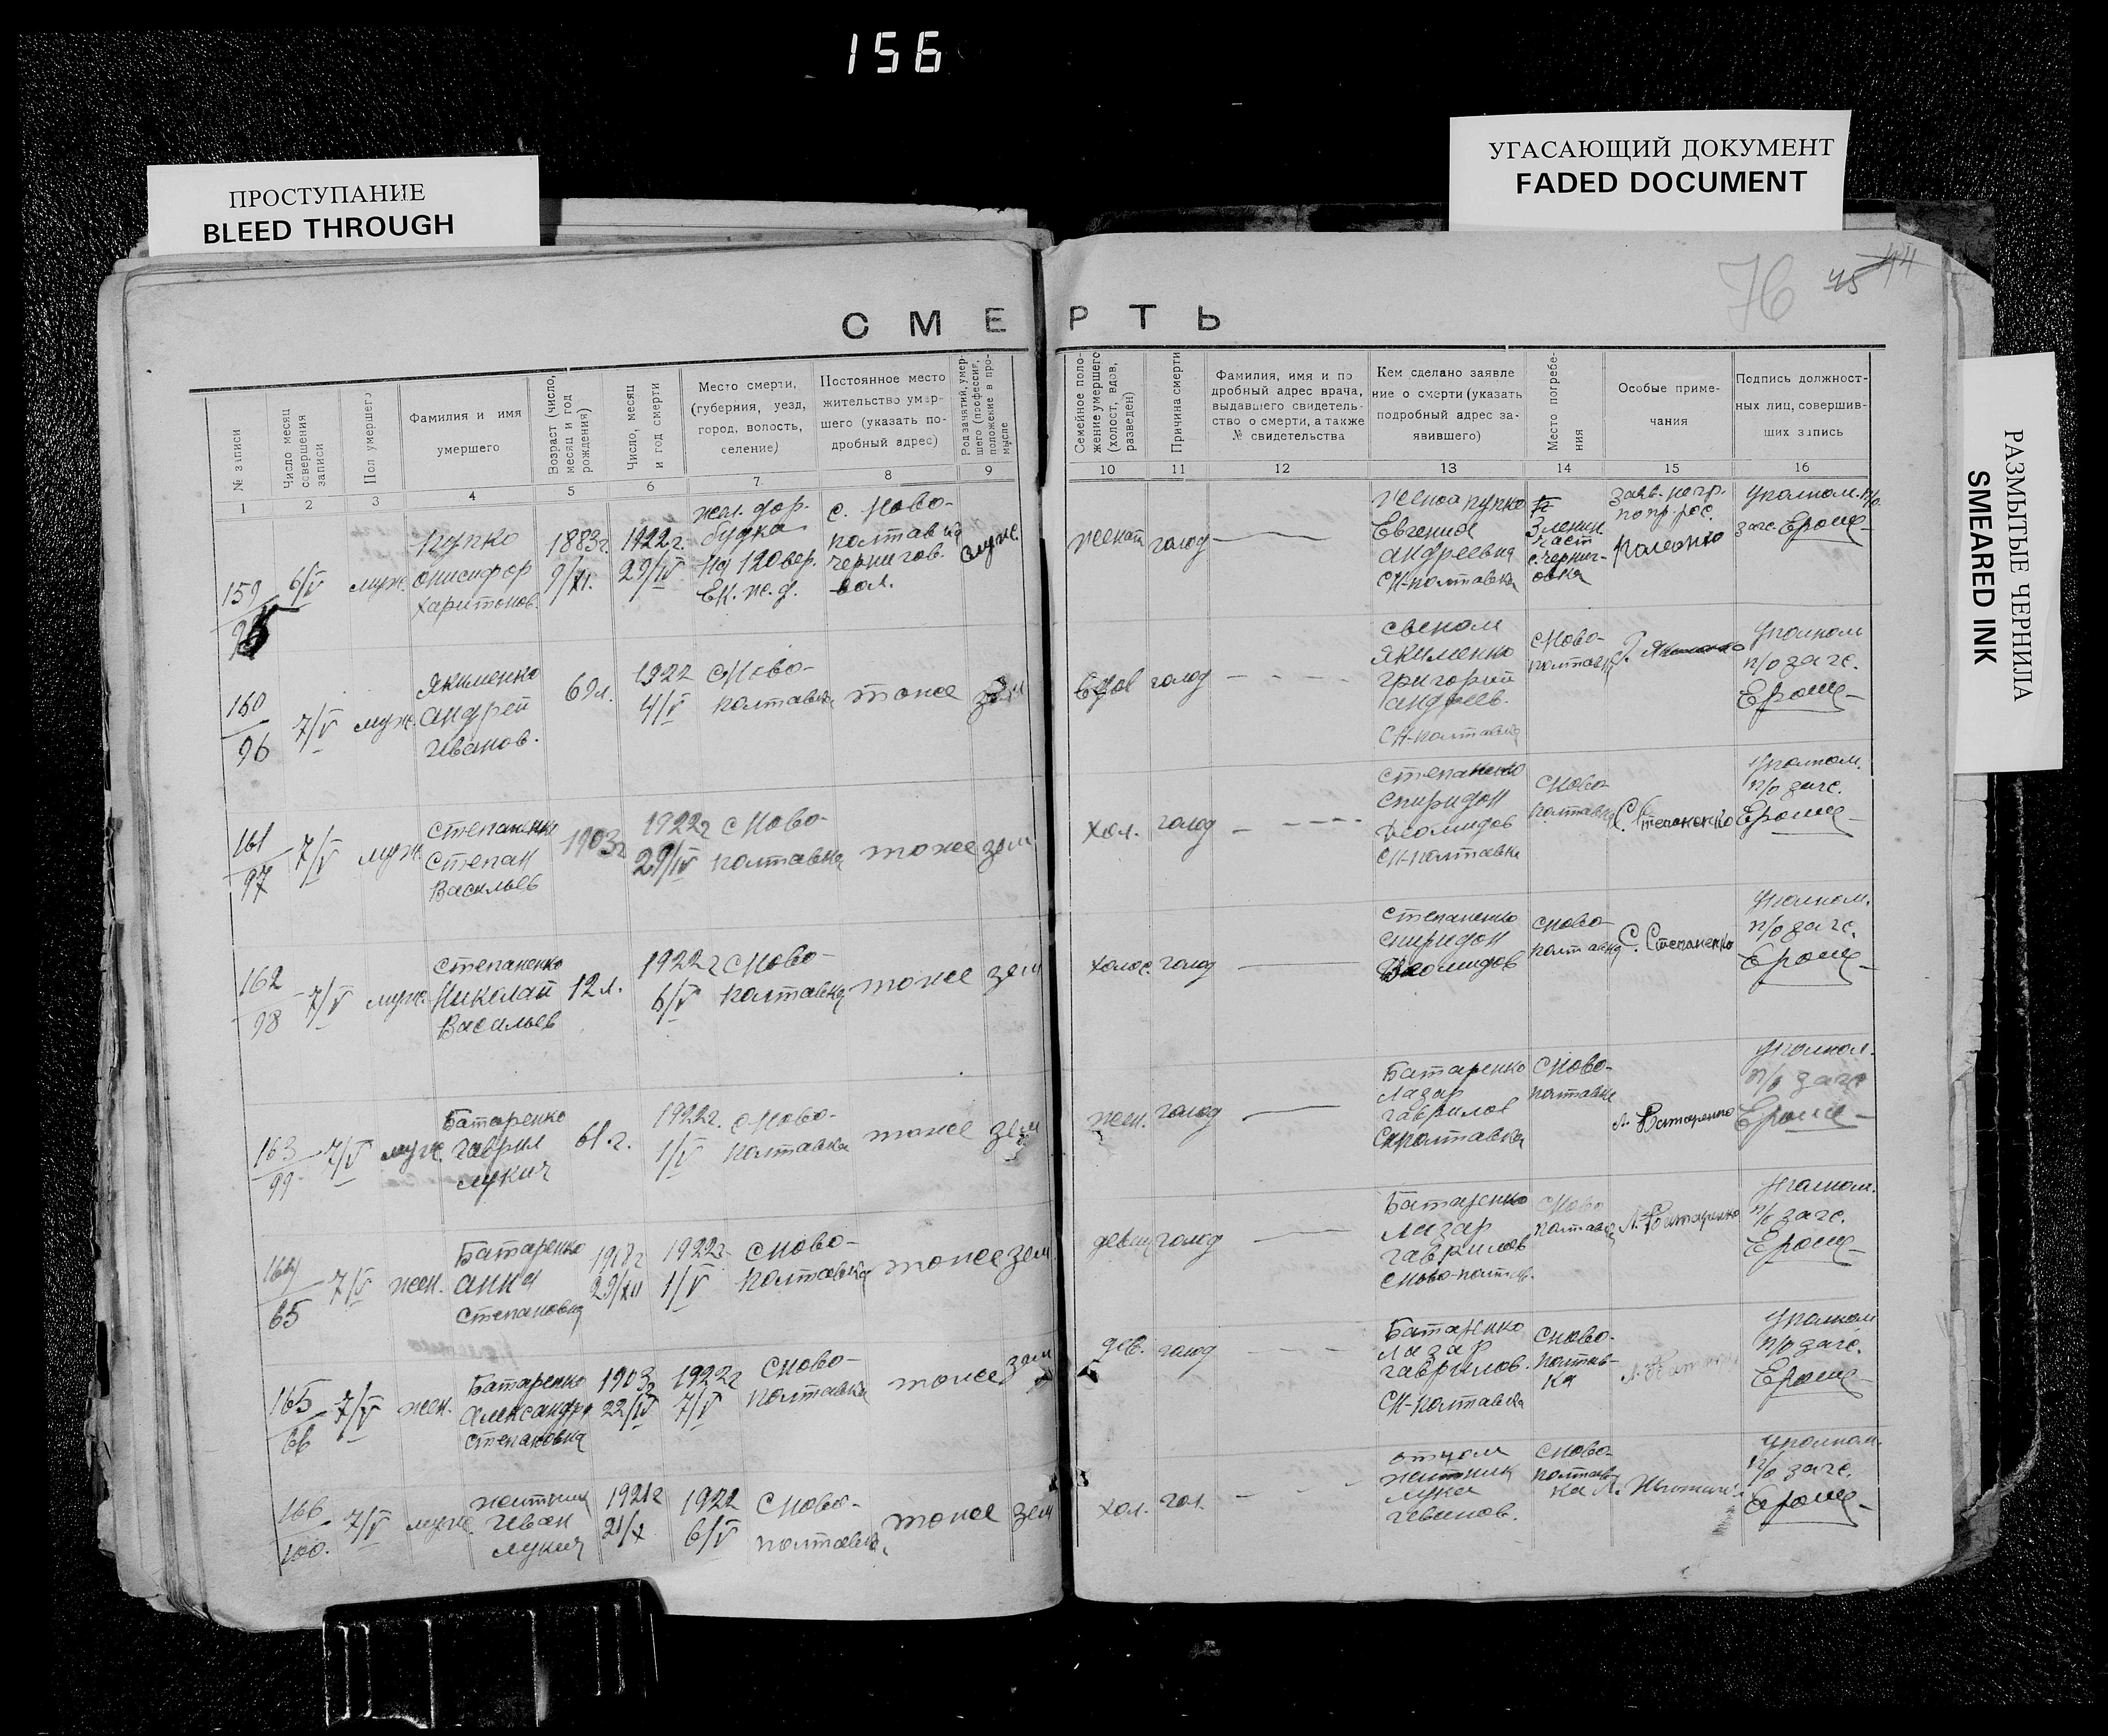 156
ПРОСТУПАНИЕ
BLEED THROUGH
УГАСАЮЩИЙ ДОКУМЕНТ
FADED DOCUMENT
РАЗМЫТЫЕ ЧЕРНИЛА
SMEARED INK
76 45 44
СМЕРТЬ
№ записи
Число месяц
совершения
записи
Пол умершего
Фамилия и имя
умершего
Возраст (число,
месяц и год
рождения)
Число, месяц
и год смерти
Место смерти,
(губерния, уезд,
город, волость,
селение)
Постоянное место
жительство умер-
шего (указать по-
дробный адрес)
Род занятий, умер-
шего (профессия,
положение в про-
мысле
Семейное поло-
жение умершего
(холост, вдов,
разведен)
Причина смерти
Фамилия, имя и по
дробный адрес врача,
выдавшего свидетель-
ство о смерти, а также
№ свидетельства
Кем сделано заявле
ние о смерти (указать
подробный адрес за-
явившего)
Место погребе-
ния
Особые приме-
чания
Подпись должност-
ных лиц, совершив-
ших запись
1 2 3 4 5 6 7 8 9 10 11 12 13 14 15 16
159
6/V
муж.
Пупко
Онисифор
Харитонов.
1883г.
9/XI.
1922г.
29/IV
жел. дор.
будка
на 120 вер.
Ек. ж. д.
с. Ново-
полтавка
чернигов.
вол.
служ.
женат
голод
женоа Пупко
Евгения
Андреевна
СН-полтавка
с. Черниг-
овка
Уполном. п/о
загс. Ероще
160
96
7/V
муж.
Якименко
Андрей
Иванов.
69л.
1922
4/V
СНово-
полтавка
тоже
зем
вдов
голод
сыном
Якименко
Григорий
Андреев.
СН-полтавка
СНово-
полтавк
Уполном
п/о загс.
Ероще
161
97
7/V
муж.
Степаненко
Степан
Васильев
1903г
1922г
29/IV
СНово-
полтавка
тоже
зем
хол.
голод
Степаненко
Спиридон
Диомидов
СН-полтавка
СНово-
полтавка
С. Степаненко
Уполном.
п/о загс.
Ероще
162
98
7/V
муж.
Степаненко
Николай
Васильев
12л.
1922г
6/V
СНово-
полтавка
тоже
зем
холос.
голод
Степаненко
Спиридон
Диомидов
СНово-
полтавка
С. Степаненко
Уполном.
п/о загс.
Ероще
163
99
7/V
муж.
Батаренко
Гаврил
Лукич
61г.
1922г.
1/V
СНово-
полтавка
тоже
зем
жен.
голод
Батаренко
Лазар
Гаврилов
СНполтавка
СНово-
полтавке
Л. Батаренко
Уполном.
п/о загс
Ероще
164
65
7/V
жен.
Батаренко
Анна
Степановна
1918г
29/XII
1922г
1/V
СНово-
полтавка
тоже
зем
девиц
голод
Батаренко
Лазар
Гаврилов
СНово-полтав.
СНово
полтавка
Л. Батаренко
Уполном.
п/о загс.
Ероще
165
66
7/V
жен.
Батаренко
Александра
Степановна
1903г
22/IV
1922г
7/V
СНово-
полтавка
тоже
зем
дев.
голод
Батаренко
Лазар
Гаврилов.
СН-полтавка
СНово-
полтав-
ка
Уполном
п/о загс.
Ероще
166
100.
7/V
муж
Житник
Иван
Лукич
1921г
21/X
1922
6/V
СНово-
полтавка,
тоже
зем
хол.
гол.
отцом
Житник
Лука
Иванов.
СНово-
полтав
ка
Уполном.
п/о загс.
Ероще